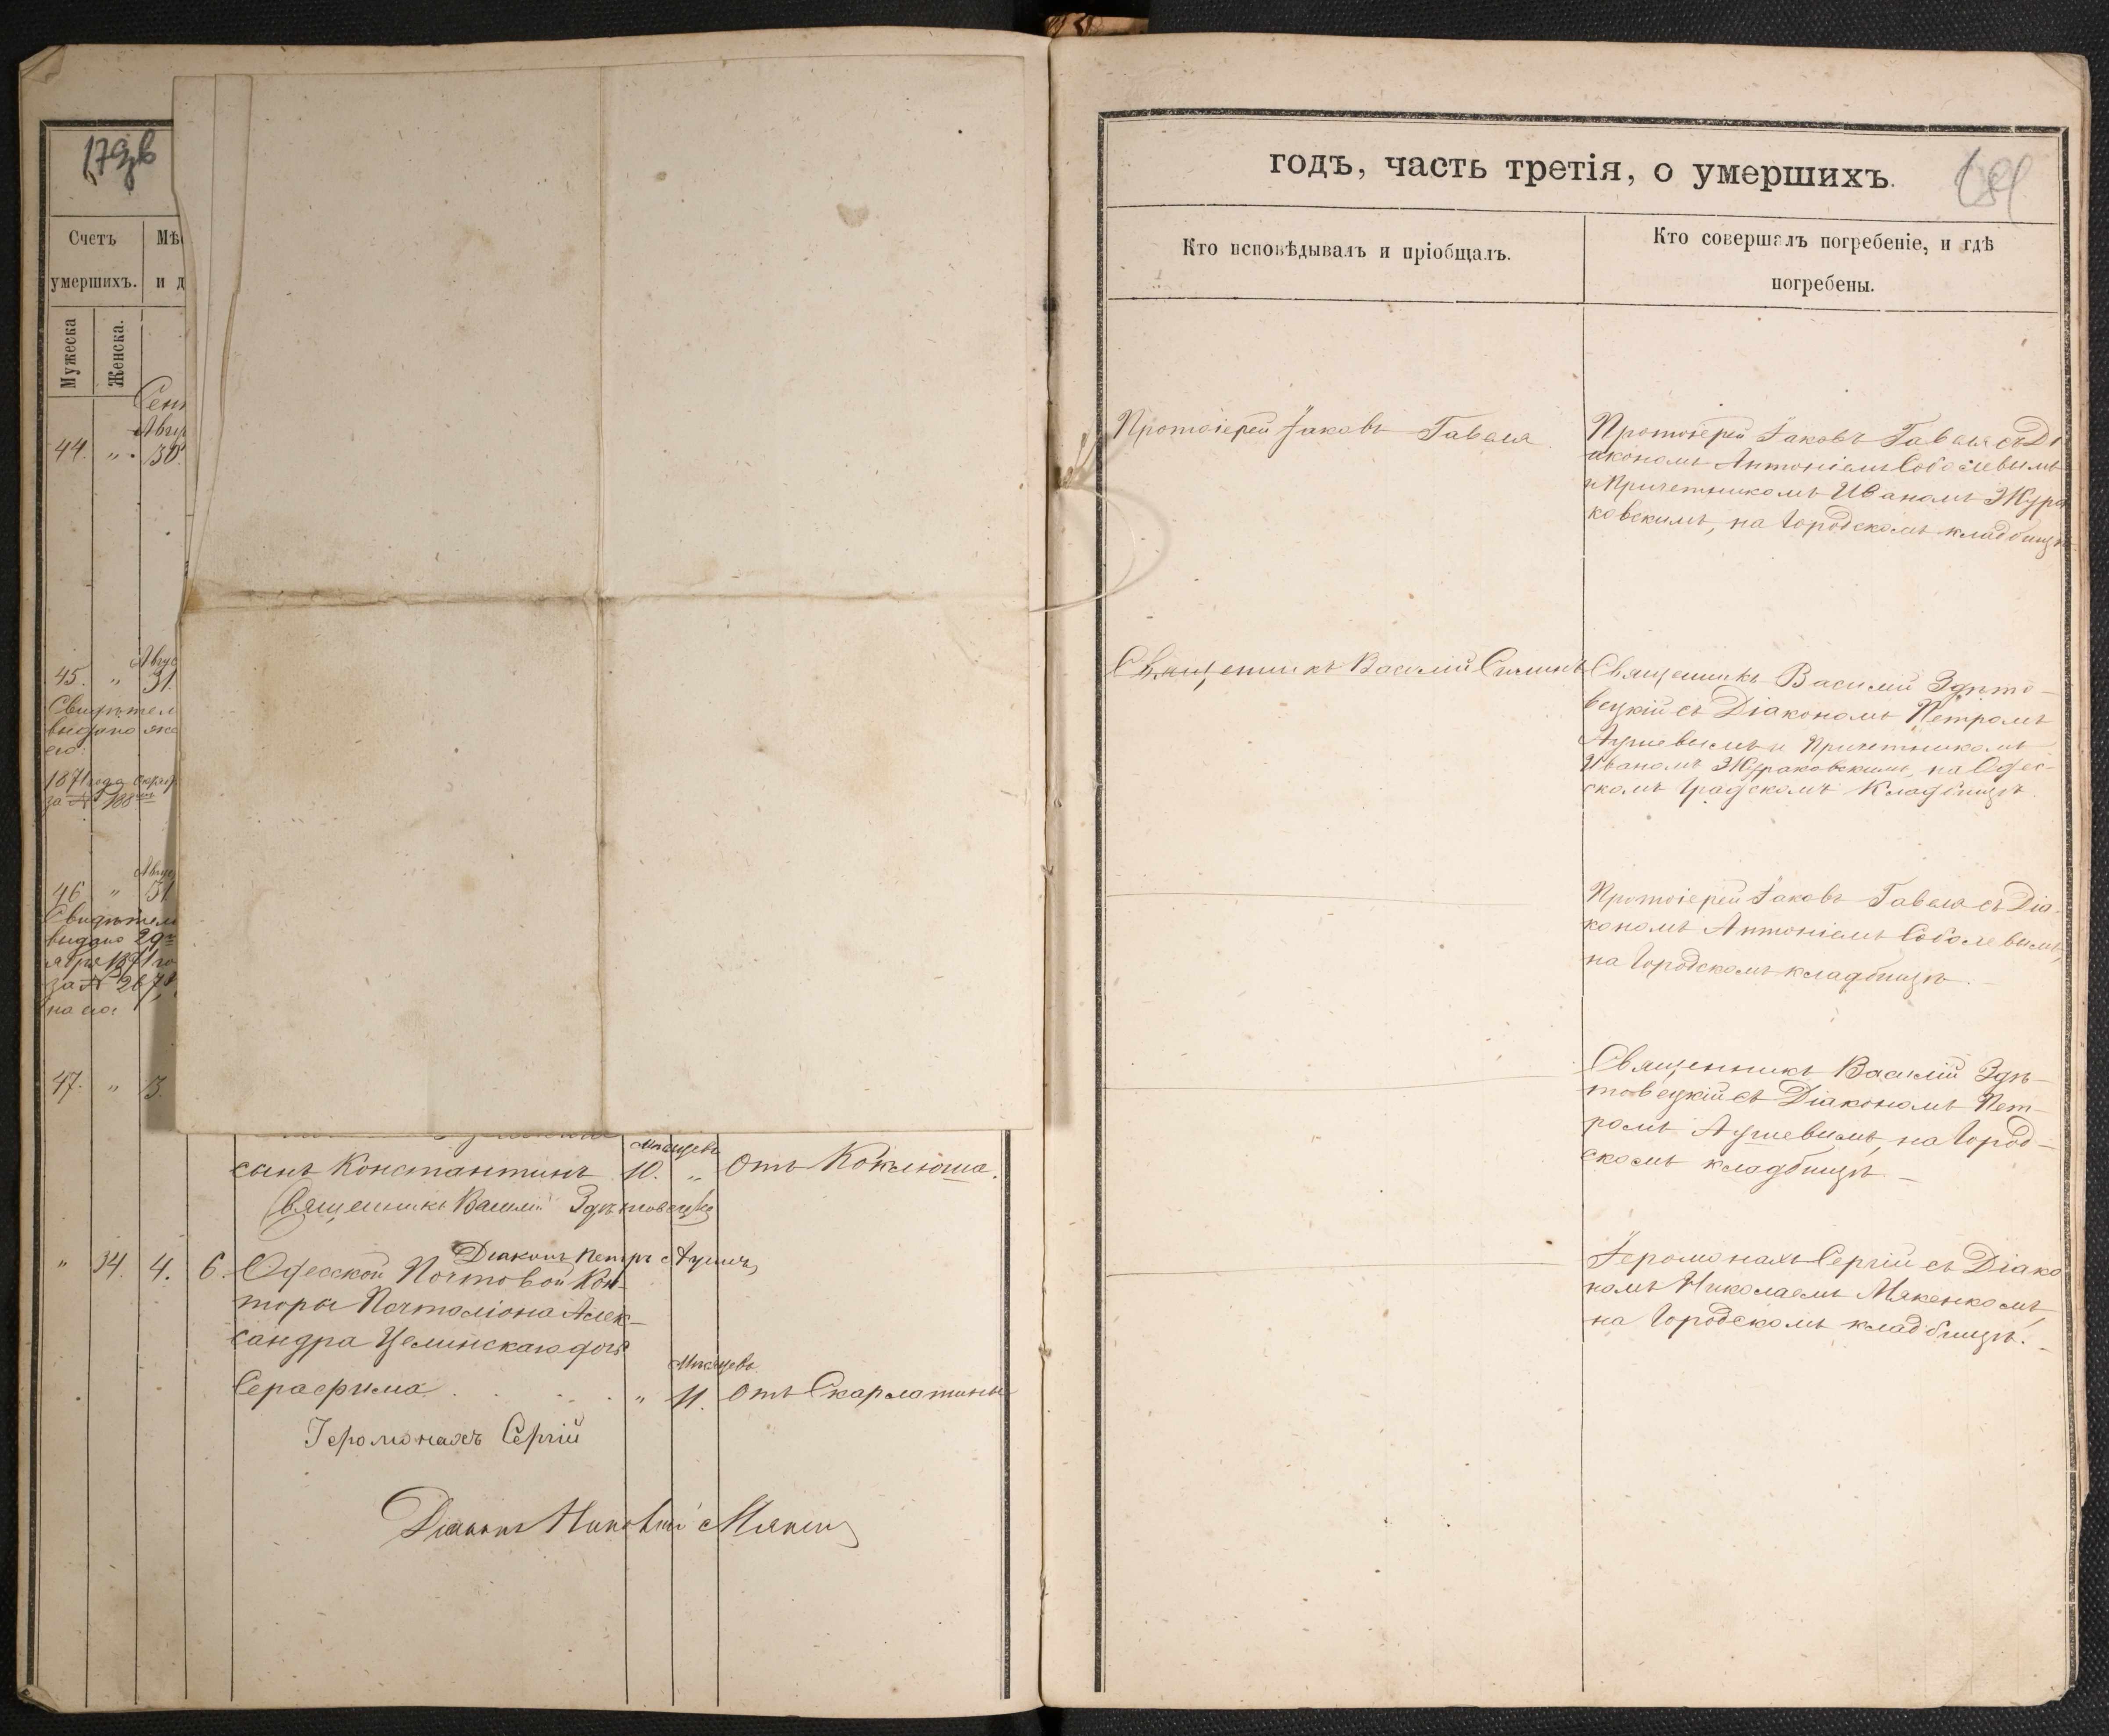 Счетъ
умершихъ.
и
Мужеска
Женска.
44. " 30
45. " 31.
1871 года
за №
46 " 31
выдано 29
за № 267
47. " 3.
Мѣсяцевъ
сынъ Константинъ 10. " Отъ Коклюша.
Священникъ Василій Здѣтовецкій
Діаконъ Петръ
" 34. 4. 6. Одесской Почтовой Кон-
торы Почталіона Алек-
сандра Целинскаго дочь
Мѣсяцевъ
Серафима " 11. Отъ Скарлатины
Іеромонахъ Сергій
Діаконъ Николай
годъ, часть третія, о умершихъ.
Кто исповѣдывалъ и пріобщалъ.
Кто совершалъ погребеніе, и гдѣ
погребены.
Протоіерей Іаковъ Гаваля
Протоіерей Іаковъ Гаваля съ Ді
акономъ Антоніемъ Соболевымъ
и Причетникомъ Иваномъ Жура
ковскимъ, на Городскомъ кладбищѣ
Священникъ Василій
Священникъ Василій Здѣто-
вецкій съ Діакономъ Петромъ
и Причетникомъ
Иваномъ Жураковскимъ, на Одес-
скомъ Градскомъ Кладбищѣ
Протоіерей Іаковъ Гаваля съ Діа-
кономъ Антоніемъ Соболевымъ,
на Городскомъ кладбищѣ.
Священникъ Василій Здѣ-
товецкій съ Діакономъ Пет-
ромъ на Город-
скомъ кладбищѣ.
Іеромонахъ Сергій съ Діако
номъ Николаемъ Мякенкомъ,
на Городскомъ кладбищѣ.